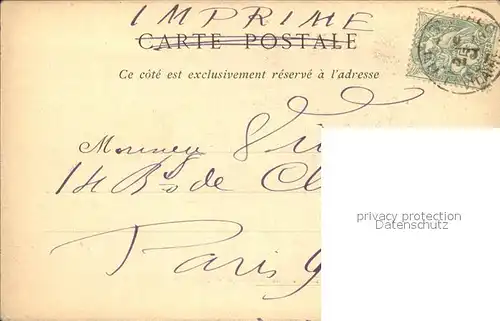 IMPRIME
CARTE POSTALE
Ce côté est exclusivement réservé à l'adresse
14 Bd de Cl
Paris 9
privacy protection
Datenschutz